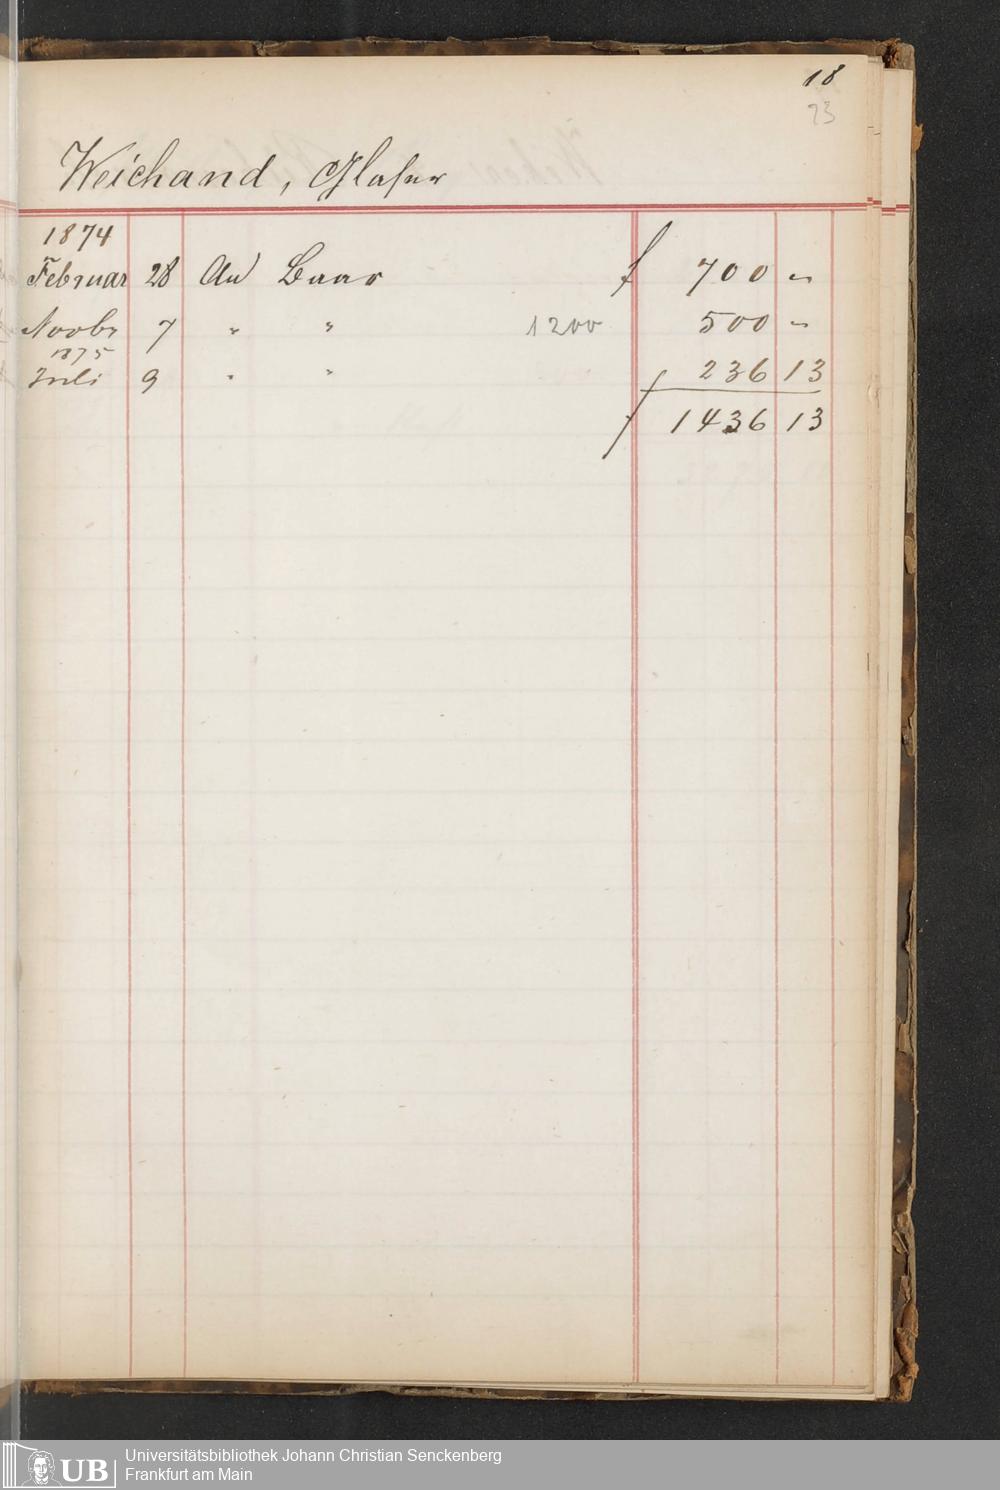 18
23
Weichand, Glaser
1874
Februar 28 An Baar f 700 "
Novbr 7 " " 1200 500 "
1875
Juli 9 " " 236 13
f 1436 13
UB Universitätsbibliothek Johann Christian Senckenberg
Frankfurt am Main